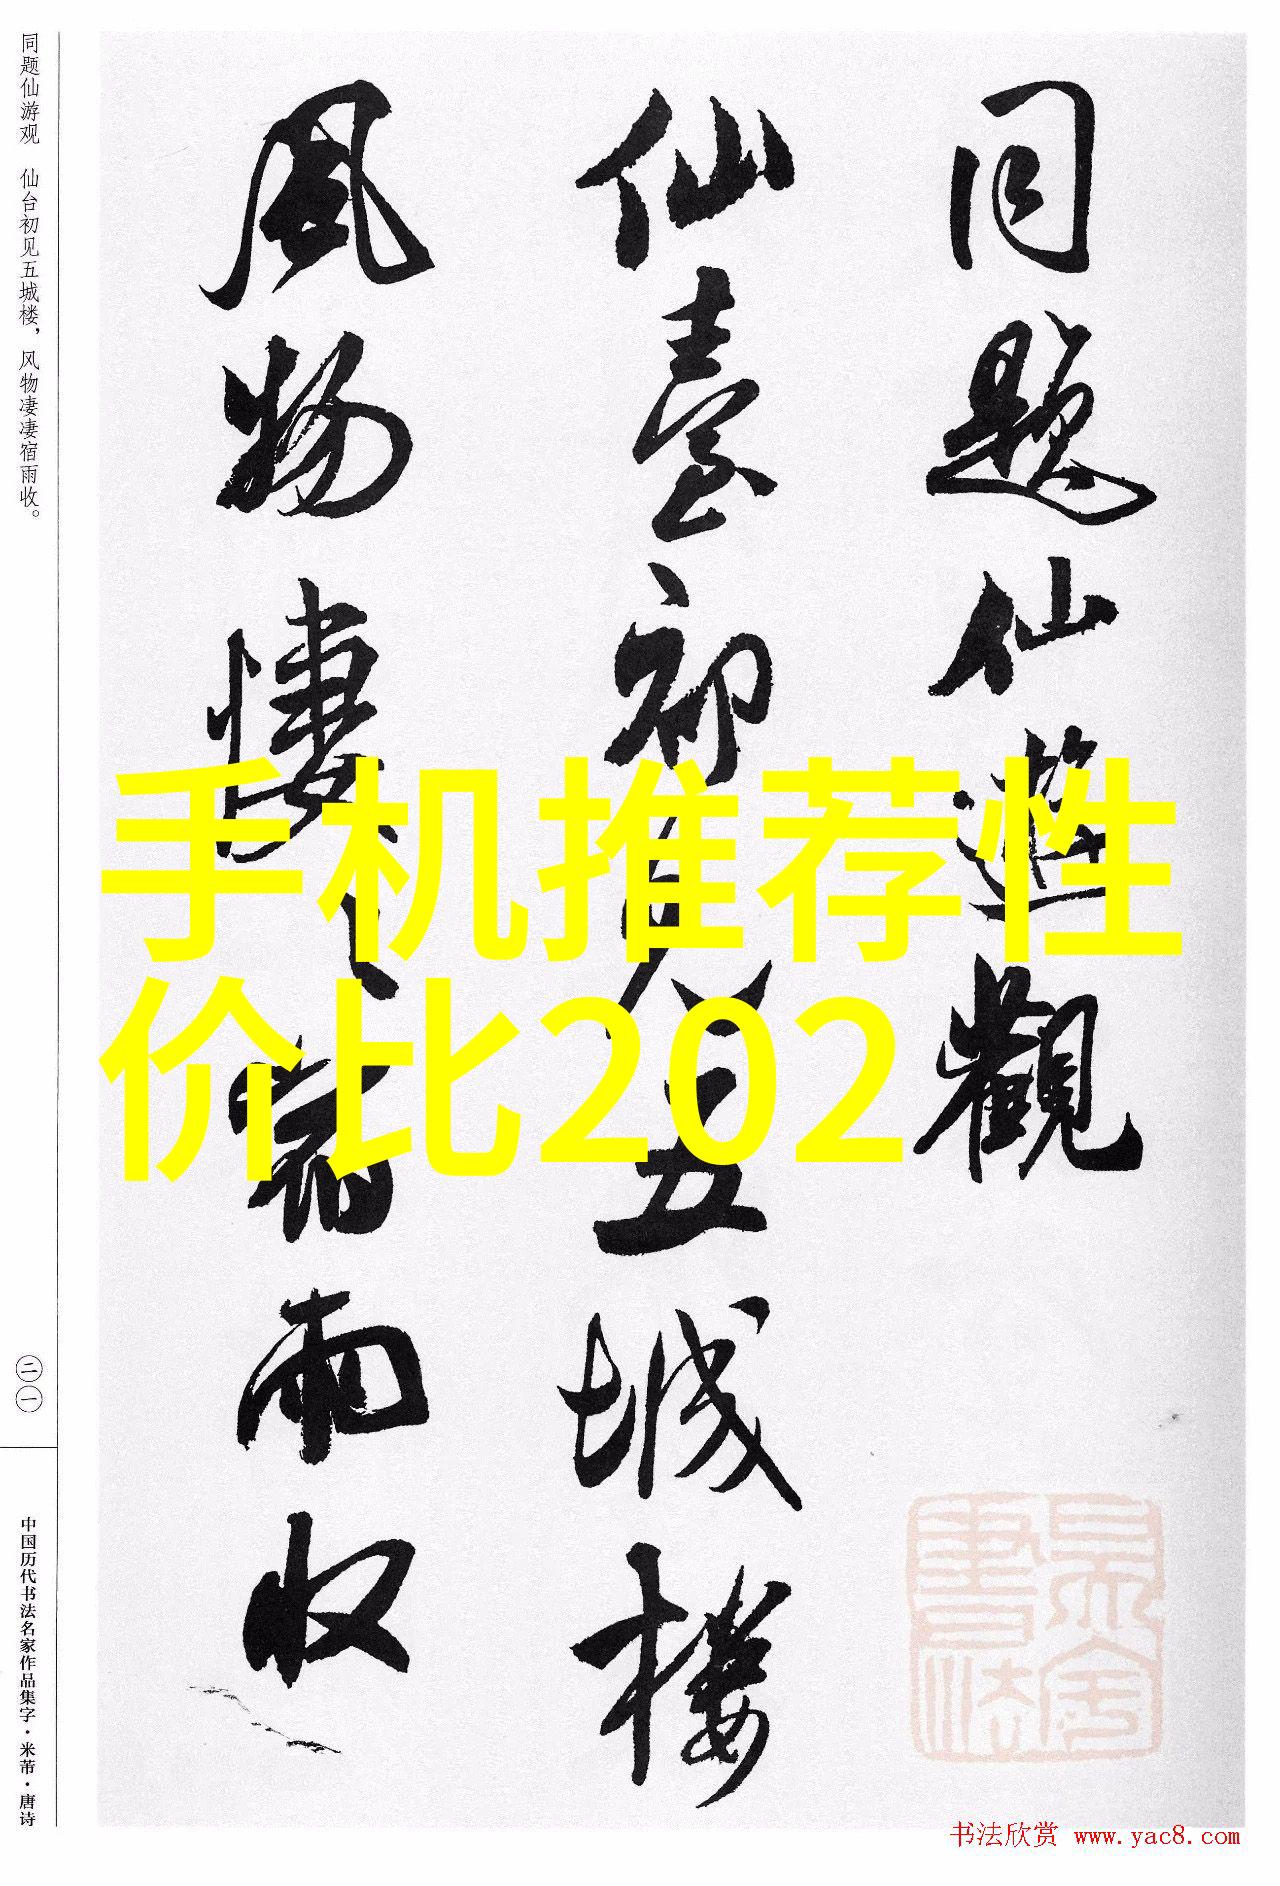 同题仙游观 仙台初见五城楼，风物凄凄宿雨收。
二一
中国历代书法名家作品集字·米芾·唐诗
同題仙遊觀
仙臺初見五城樓
風物悽悽宿雨收
手机推荐性
价比202
书法欣赏 www.yac8.com